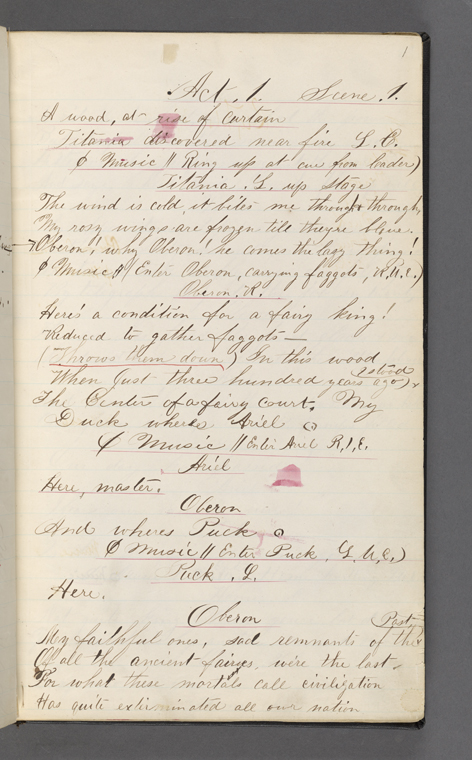 1
Act, 1. Scene. 1.
A wood, at rise of Curtain
Titania discovered near fire L. C.
¢ Music || Ring up at cue from leader)
Titania. L. up Stage
The wind is cold, it bites me through & through,
My rosy wings are frozen till theyre blue.
Oberon! why Oberon! he comes the lazy thing!
¢ Music || Enter Oberon, carrying faggots, R.U.E.)
Oberon. R.
Here's a condition for a fairy king!
Reduced to gather faggots—
(Throws them down) In this wood
When Just three hundred years ago) stood
The Center of a fairy court. My
Duck wheres Ariel
¢ Music || Enter Ariel R,1,E.
Ariel
Here, master.
Oberon
And wheres Puck
¢ Music || Enter Puck, L.U.E.)
Puck. L.
Here.
Oberon
My faithful ones, sad remnants of the Past,
Of all the ancient fairies, we're the last.
For what these mortals call civilization
Has quite exterminated all our nation